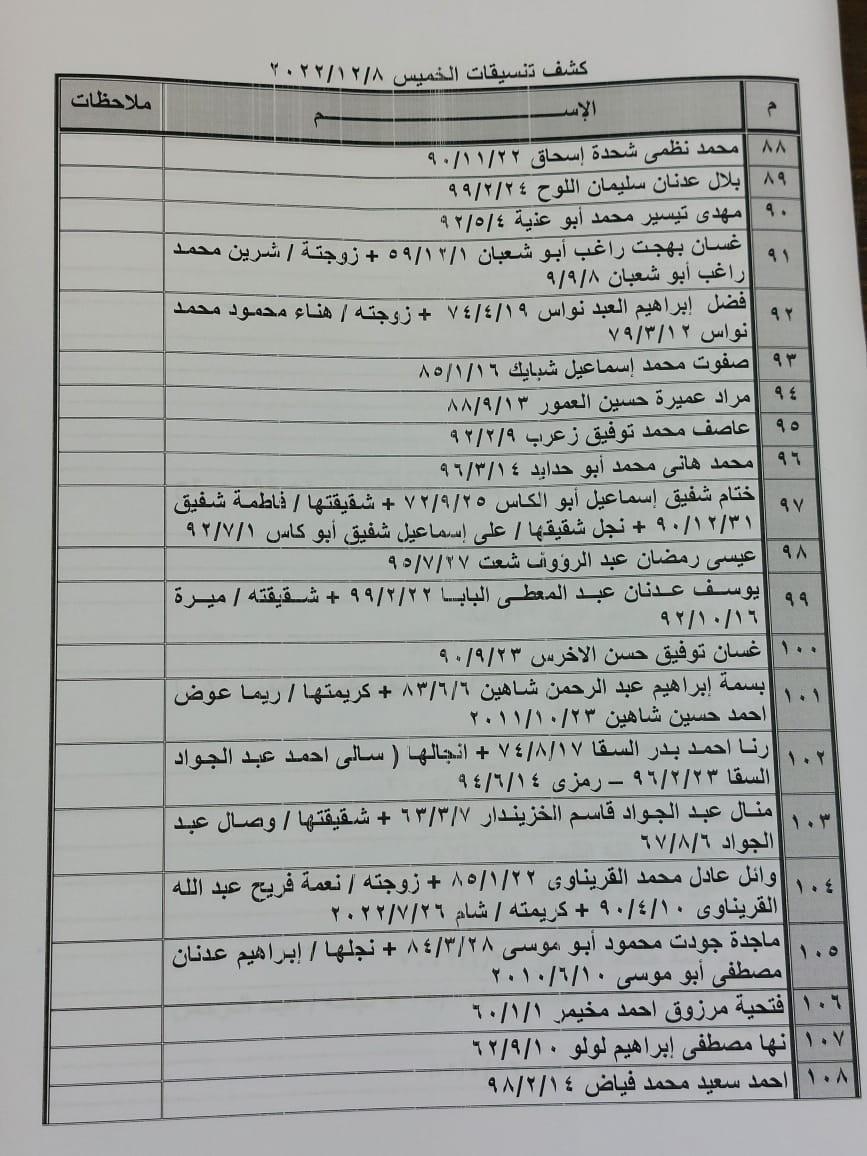 كشف تنسيقات الخميس ٢٠٢٢/١٢/٨
م الإســـــــــــم ملاحظات
٨٨ محمد نظمى شحدة إسحاق ٩٠/١١/٢٢
٨٩ بلال عدنان سليمان اللوح ٩٩/٢/٢٤
٩٠ مهدى تيسير محمد أبو عنية ٩٢/٥/٤
٩١ غسان بهجت راغب أبو شعبان ٥٩/١٢/١ + زوجتة / شرين محمد
راغب أبو شعبان ٩/٩/٨
٩٢ فضل إبراهيم العبد نواس ٧٤/٤/١٩ + زوجته / هناء محمود محمد
نواس ٧٩/٣/١٢
٩٣ صفوت محمد إسماعيل شبايك ٨٥/١/١٦
٩٤ مراد عميرة حسين العمور ٨٨/٩/١٣
٩٥ عاصف محمد توفيق زعرب ٩٢/٢/٩
٩٦ محمد هانى محمد أبو حدايد ٩٦/٣/١٤
٩٧ ختام شفيق إسماعيل أبو الكاس ٧٢/٩/٢٥ + شقيقتها / فاطمة شفيق
٩٠/١٢/٣١ + نجل شقيقها / على إسماعيل شفيق أبو كاس ٩٢/٧/١
٩٨ عيسى رمضان عبد الرؤوف شعت ٩٥/٧/٢٧
٩٩ يوسف عدنان عبد المعطى البابا ٩٩/٢/٢٢ + شقيقته / ميرة
٩٢/١٠/١٦
١٠٠ غسان توفيق حسن الاخرس ٩٠/٩/٢٣
١٠١ بسمة إبراهيم عبد الرحمن شاهين ٨٣/٦/٦ + كريمتها / ريما عوض
احمد حسين شاهين ٢٠١١/١٠/٢٣
١٠٢ رنا احمد بدر السقا ٧٤/٨/١٧ + انجالها ( سالى احمد عبد الجواد
السقا ٩٦/٢/٢٣ – رمزى ٩٤/٦/١٤
١٠٣ منال عبد الجواد قاسم الخزيندار ٦٣/٣/٧ + شقيقتها / وصال عبد
الجواد ٦٧/٨/٦
١٠٤ وائل عادل محمد القريناوى ٨٥/١/٢٢ + زوجته / نعمة فريح عبد الله
القريناوى ٩٠/٤/١٠ + كريمته / شام ٢٠٢٢/٧/٢٦
١٠٥ ماجدة جودت محمود أبو موسى ٨٤/٣/٢٨ + نجلها / إبراهيم عدنان
مصطفى أبو موسى ٢٠١٠/٦/١٠
١٠٦ فتحية مرزوق احمد مخيمر ٦٠/١/١
١٠٧ نها مصطفى إبراهيم لولو ٦٢/٩/١٠
١٠٨ احمد سعيد محمد فياض ٩٨/٢/١٤